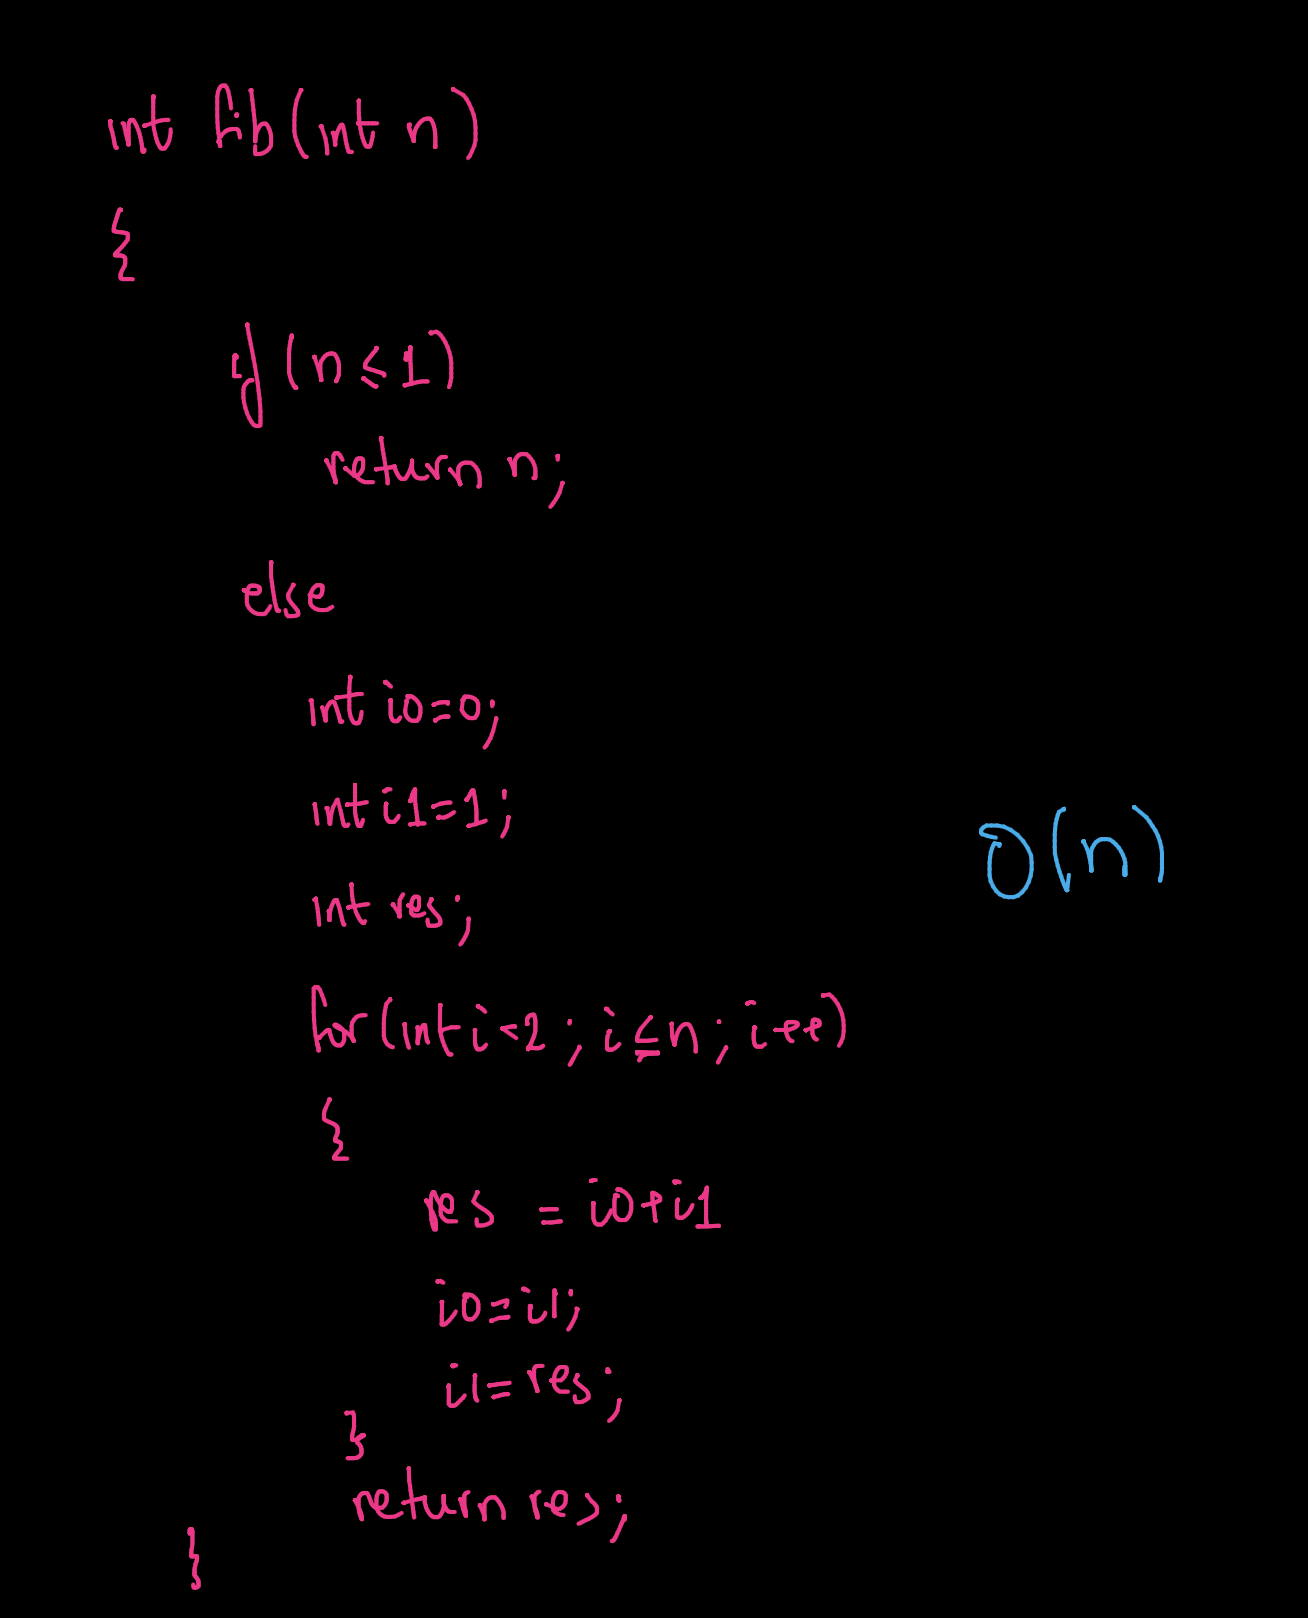 int fib(int n)
{
if (n ≤ 1)
return n;
else
int i0=0;
int i1=1;
int res;
for(int i=2; i≤n; i++)
{
res = i0+i1
i0=i1;
i1=res;
}
return res;
}
O(n)